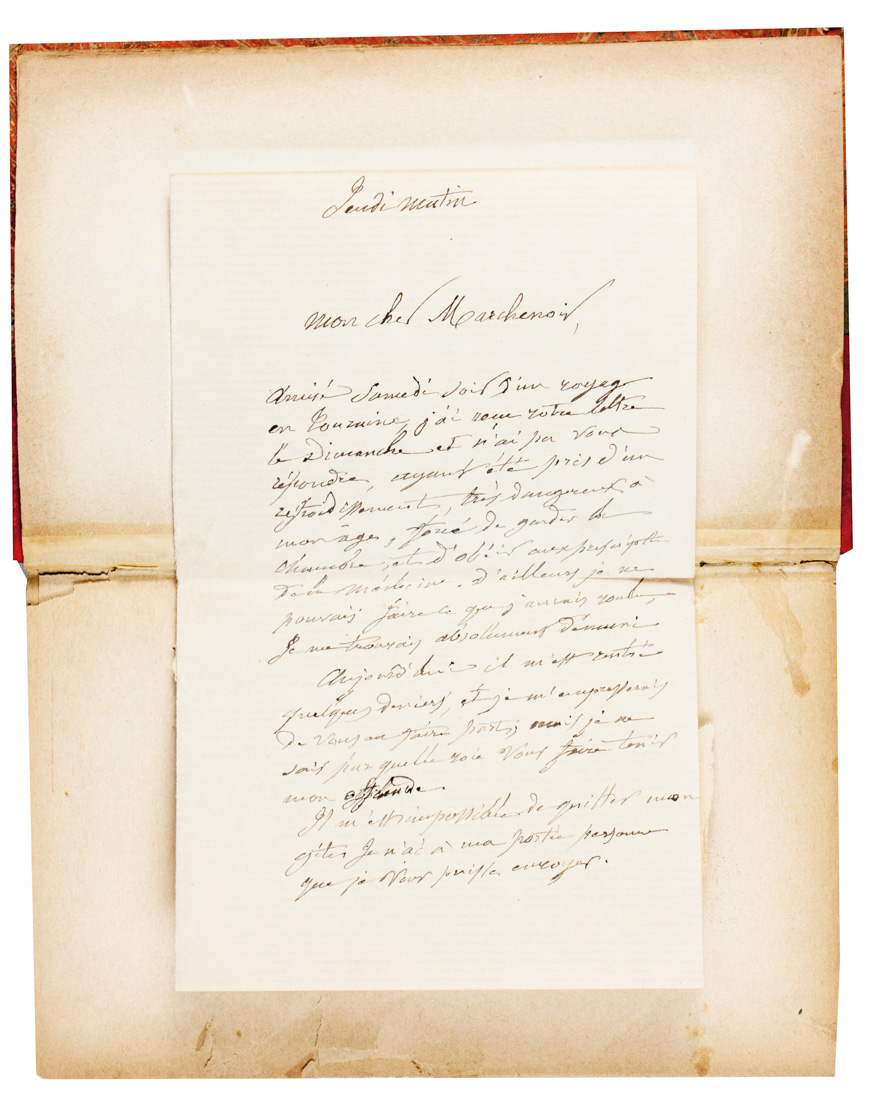 Jeudi matin
mon cher Marchenoir,
Arrivé Samedi soir d'un voyage
en Touraine, j'ai reçu votre lettre
le Dimanche et n'ai pu vous
répondre, ayant été pris d'un
refroidissement, très dangereux à
mon âge, forcé de garder la
chambre, et d'obéir aux prescriptions
de la médecine. d'ailleurs je ne
pouvais faire ce que j'aurais voulu,
Je me trouvais absolument démuni
Aujourd'hui il m'est rentré
quelques deniers, et je m'empresserais
de vous en faire part; mais je ne
sais par quelle voie vous faire tenir
mon offrande.
Il m'est impossible de quitter mon
gîte. Je n'ai à ma portée personne
que je vous puisse envoyer.